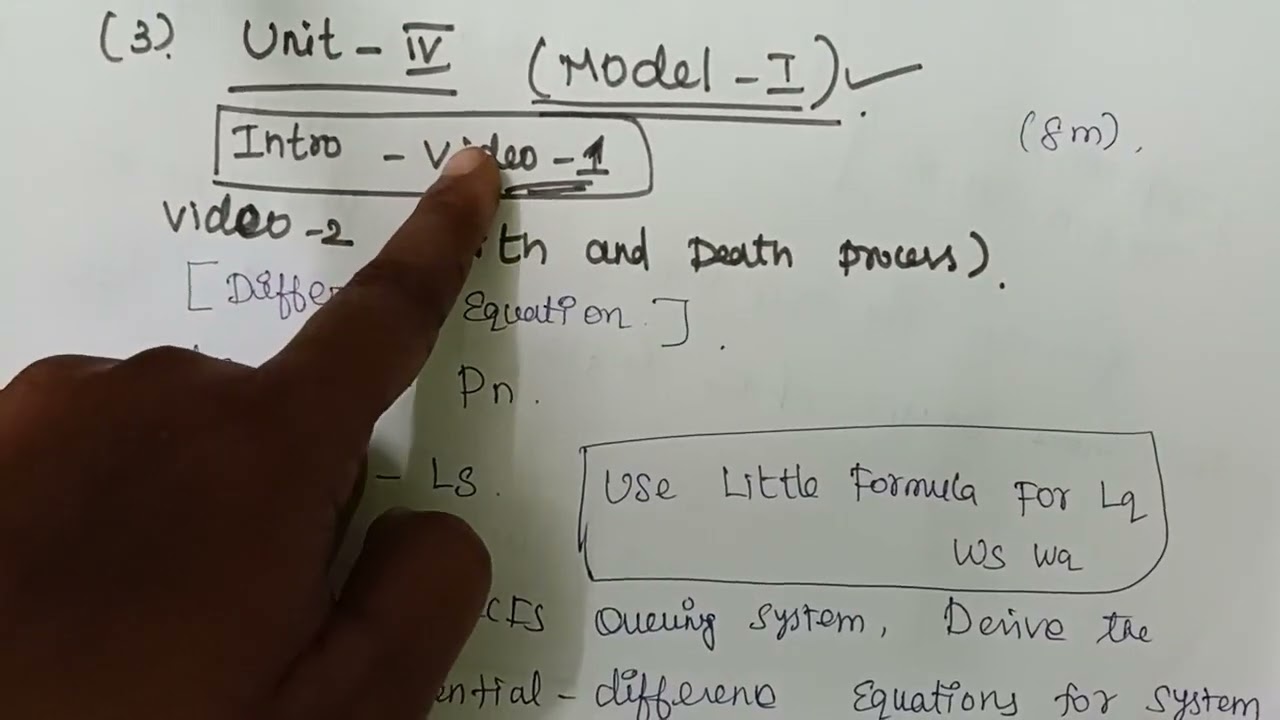 (3). Unit - IV (Model - I) ✓.
Intro - Video - 1
(8m).
Video -2 and Death process).
Equation.]
Pn.
- Ls.
Use Little Formula For Lq
Ws Wq
Queuing system, Derive the
differenc Equations for system